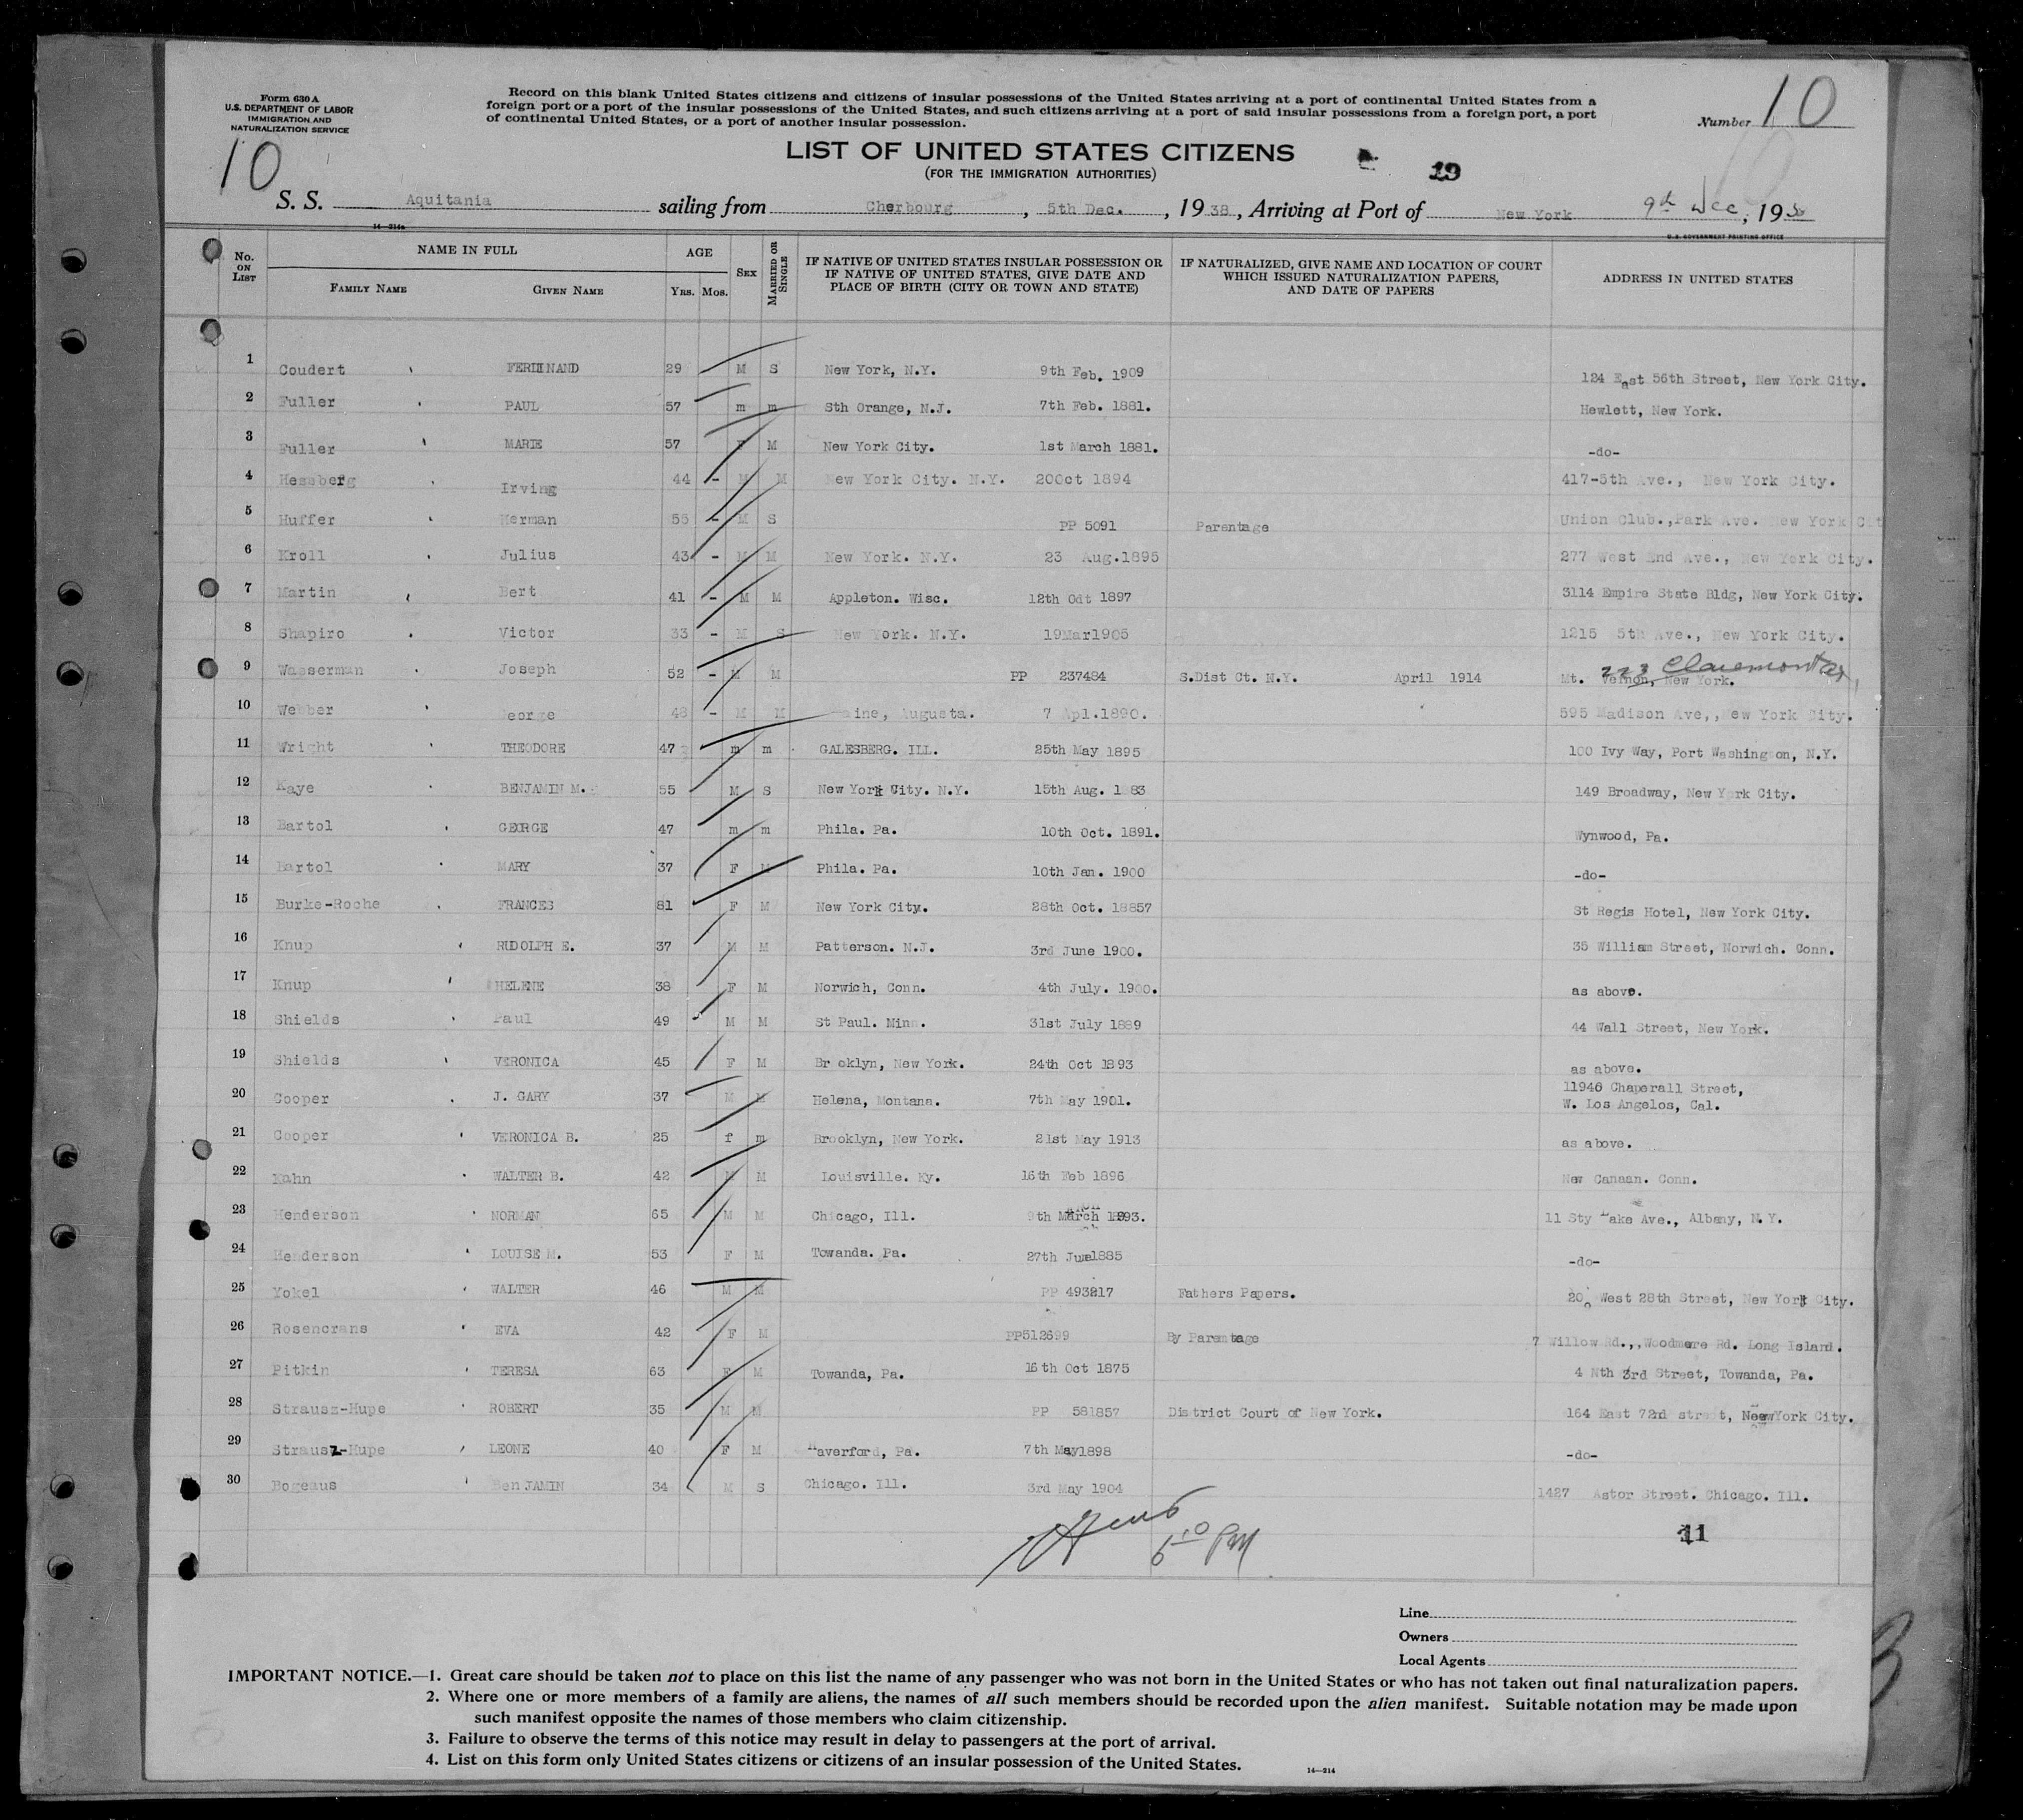 Form 630 A
U.S. DEPARTMENT OF LABOR
IMMIGRATION AND
NATURALIZATION SERVICE
Record on this blank United States citizens and citizens of insular possessions of the United States arriving at a port of continental United States from a
foreign port or a port of the insular possessions of the United States, and such citizens arriving at a port of said insular possessions from a foreign port, a port
of continental United States, or a port of another insular possession.
Number 10
10
LIST OF UNITED STATES CITIZENS
(FOR THE IMMIGRATION AUTHORITIES)
19
S. S. Aquitania sailing from Cherbourg, 5th Dec., 1938, Arriving at Port of New York 9th Dec, 1938
14-214a
U.S. GOVERNMENT PRINTING OFFICE
No. ON LIST NAME IN FULL FAMILY NAME GIVEN NAME AGE YRS. MOS. SEX MARRIED OR SINGLE IF NATIVE OF UNITED STATES INSULAR POSSESSION OR IF NATIVE OF UNITED STATES, GIVE DATE AND PLACE OF BIRTH (CITY OR TOWN AND STATE) IF NATURALIZED, GIVE NAME AND LOCATION OF COURT WHICH ISSUED NATURALIZATION PAPERS, AND DATE OF PAPERS ADDRESS IN UNITED STATES
1 Coudert FERDINAND 29 M S New York, N.Y. 9th Feb. 1909 124 East 56th Street, New York City.
2 Fuller PAUL 57 m m Sth Orange, N.J. 7th Feb. 1881. Hewlett, New York.
3 Fuller MARIE 57 F M New York City. 1st March 1881. -do-
4 Hessberg Irving 44 - M M New York City. N.Y. 20Oct 1894 417-5th Ave., New York City.
5 Huffer Herman 55 - M S PP 5091 Parentage Union Club.,Park Ave. New York Cit
6 Kroll Julius 43 - M M New York. N.Y. 23 Aug.1895 277 West End Ave., New York City.
7 Martin Bert 41 - M M Appleton. Wisc. 12th Odt 1897 3114 Empire State Bldg, New York City.
8 Shapiro Victor 33 - M S New York. N.Y. 19Mar1905 1215 5th Ave., New York City.
9 Wasserman Joseph 52 - M M PP 237484 S.Dist Ct. N.Y. April 1914 223 Claremont Av, Mt. Vernon, New York.
10 Webber George 48 - M M Maine, Augusta. 7 Apl.1890. 595 Madison Ave,,New York City.
11 Wright THEODORE 47 m m GALESBERG. ILL. 25th May 1895 100 Ivy Way, Port Washington, N.Y.
12 Kaye BENJAMIN M. 55 M S New York City. N.Y. 15th Aug. 1883 149 Broadway, New York City.
13 Bartol GEORGE 47 m m Phila. Pa. 10th Oct. 1891. Wynwood, Pa.
14 Bartol MARY 37 F M Phila. Pa. 10th Jan. 1900 -do-
15 Burke-Roche FRANCES 81 F M New York City. 28th Oct. 18857 St Regis Hotel, New York City.
16 Knup RUDOLPH E. 37 M M Patterson. N.J. 3rd June 1900. 35 William Street, Norwich. Conn.
17 Knup HELENE 38 F M Norwich, Conn. 4th July. 1900. as above.
18 Shields Paul 49 M M St Paul. Minn. 31st July 1889 44 Wall Street, New York.
19 Shields VERONICA 45 F M Brooklyn, New York. 24th Oct 1893 as above.
20 Cooper J. GARY 37 M M Helena, Montana. 7th May 1901. 11946 Chaperall Street, W. Los Angelos, Cal.
21 Cooper VERONICA B. 25 f m Brooklyn, New York. 21st May 1913 as above.
22 Kahn WALTER B. 42 M M Louisville. Ky. 16th Feb 1896 New Canaan. Conn.
23 Henderson NORMAN 65 M M Chicago, Ill. 9th March 1893. 11 Sty Lake Ave., Albany, N.Y.
24 Henderson LOUISE M. 53 F M Towanda. Pa. 27th June1885 -do-
25 Yokel WALTER 46 M M PP 493217 Fathers Papers. 20, West 28th Street, New York City.
26 Rosencrans EVA 42 F M PP512699 By Parentage 7 Willow Rd.,,Woodmere Rd. Long Island.
27 Pitkin TERESA 63 F M Towanda, Pa. 16th Oct 1875 4 Nth 3rd Street, Towanda, Pa.
28 Strausz-Hupe ROBERT 35 M M PP 581857 District Court of New York. 164 East 72nd street, New York City.
29 Strausz-Hupe LEONE 40 F M Haverford, Pa. 7th May1898 -do-
30 Bogeaus BenJAMIN 34 M S Chicago. Ill. 3rd May 1904 1427 Astor Street. Chicago. Ill.
6 10 PM
11
Line
Owners
Local Agents
IMPORTANT NOTICE.—1. Great care should be taken not to place on this list the name of any passenger who was not born in the United States or who has not taken out final naturalization papers.
2. Where one or more members of a family are aliens, the names of all such members should be recorded upon the alien manifest. Suitable notation may be made upon
such manifest opposite the names of those members who claim citizenship.
3. Failure to observe the terms of this notice may result in delay to passengers at the port of arrival.
4. List on this form only United States citizens or citizens of an insular possession of the United States.
14-214